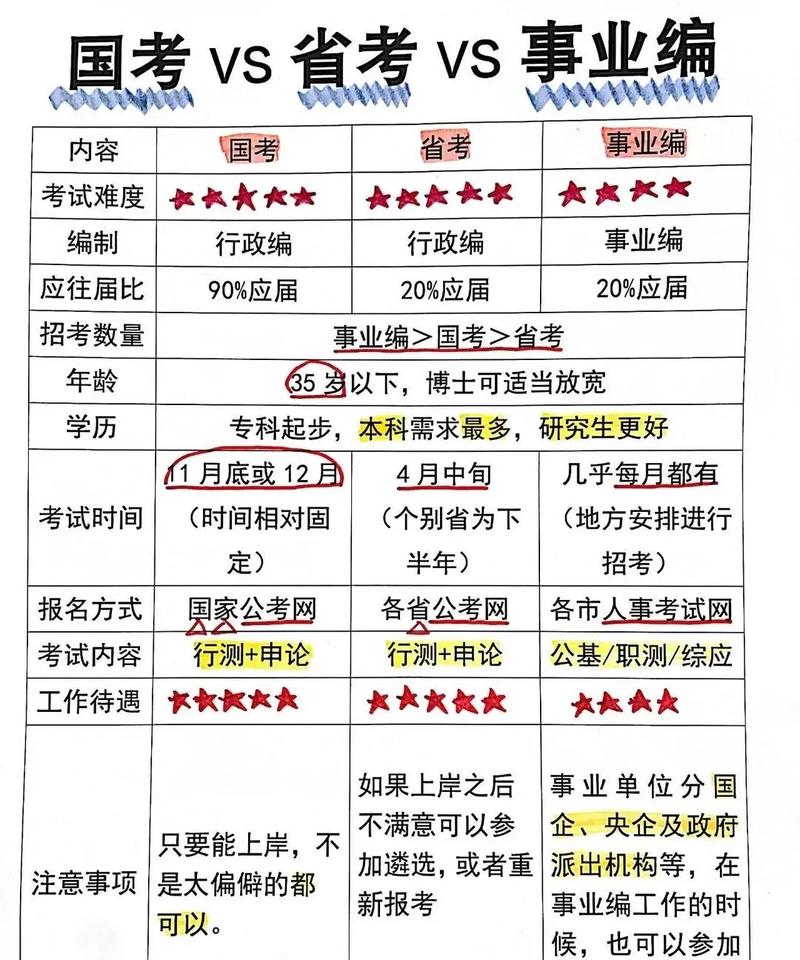 国考 VS 省考 VS 事业编
内容 国考 省考 事业编
考试难度 ★★★★★ ★★★★★ ★★★★
编制 行政编 行政编 事业编
应往届比 90%应届 20%应届 20%应届
招考数量 事业编>国考>省考
年龄 35岁以下，博士可适当放宽
学历 专科起步，本科需求最多，研究生更好
考试时间
11月底或12月
（时间相对固
定）
4月中旬
（个别省为下
半年）
几乎每月都有
（地方安排进行
招考）
报名方式 国家公考网 各省公考网 各市人事考试网
考试内容 行测+申论 行测+申论 公基/职测/综应
工作待遇 ★★★★★ ★★★★★ ★★★★
注意事项
只要能上岸，不
是太偏僻的都
可以。
如果上岸之后
不满意可以参
加遴选，或者重
新报考
事业单位分国
企、央企及政府
派出机构等，在
事业编工作的时
候，也可以参加